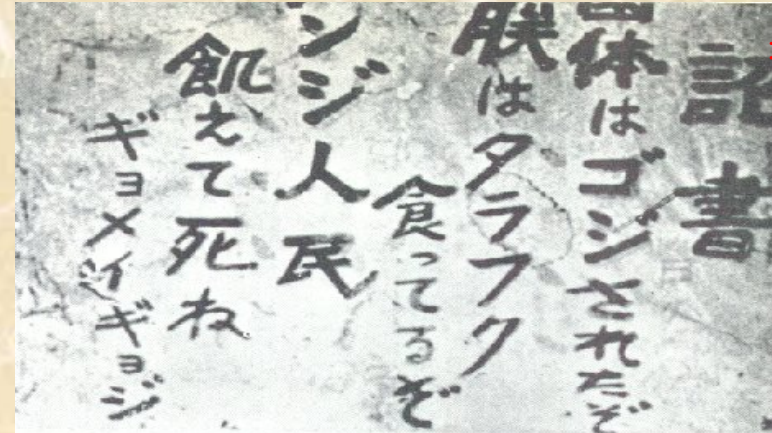 詔書
国体はゴジされたぞ
朕はタラフク
食ってるぞ
ンジ人民
飢えて死ね
ギョメイギョジ